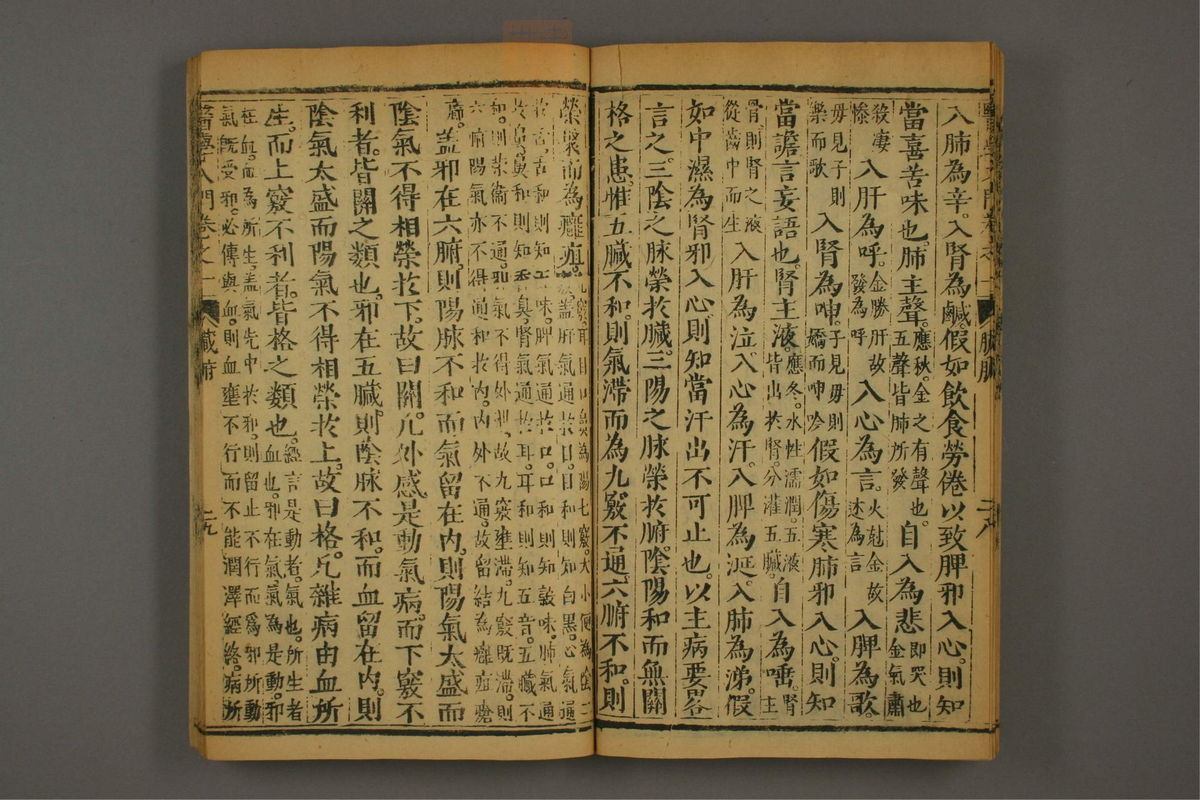 入肺為辛。入腎為鹹。假如飲食勞倦以致脾邪入心。則知
當喜苦味也。肺主聲。應秋。金之有聲也。五聲皆肺所發自入為悲即哭也金氣肅
殺凄慘入肝為呼。金勝肝故發為呼入心為言。火尅金故述為言入脾為歌。
毋見子則樂而歌入腎為呻。子見毋則嬌而呻吟假如傷寒肺邪入心。則知
當譫言妄語也。腎主液。應冬。水性濡潤。五液皆出於腎。分灌五臟。自入為唾。腎主
骨。則腎之液從齒中而生入肝為泣。入心為汗。入脾為涎。入肺為涕。假
如中濕為腎邪入心。則知當汗出不可止也。以主病要畧
言之。三陰之脉榮於臟。三陽之脉榮於腑。陰陽和而無關
格之患。惟五臟不和。則氣滯而為九竅不通。六腑不和。則
榮聚而為癰疽。為陽七竅。大小便為陰二
於舌。舌和則知味。脾氣通於口。口和則知穀味。肺氣通
於鼻。鼻和則知香臭。腎氣通於耳。耳和則知五音。五臟不
和。則榮衛不通。邪氣不得外泄。故九竅壅滯。九竅既滯。則
六腑陽氣亦不得通和於內。內外不通。故留結為癰疽瘡
癤。蓋邪在六腑。則陽脉不和而氣留在內。則陽氣太盛而
陰氣不得相榮於下。故曰關。凡外感是動氣病。而下竅不
利者。皆關之類也。邪在五臟。則陰脉不和。而血留在內。則
陰氣太盛而陽氣不得相榮於上。故曰格。凡雜病由血所
生。而上竅不利者。皆格之類也。經言是動者。氣也。所生者血也。邪在氣。氣為是動。邪
在血。血為所生。蓋氣先中於邪。則留止不行而為邪所動
氣既受邪。必傳與血。則血壅不行而不能潤澤經絡。病所
醫學入門卷之一 臟腑 二九